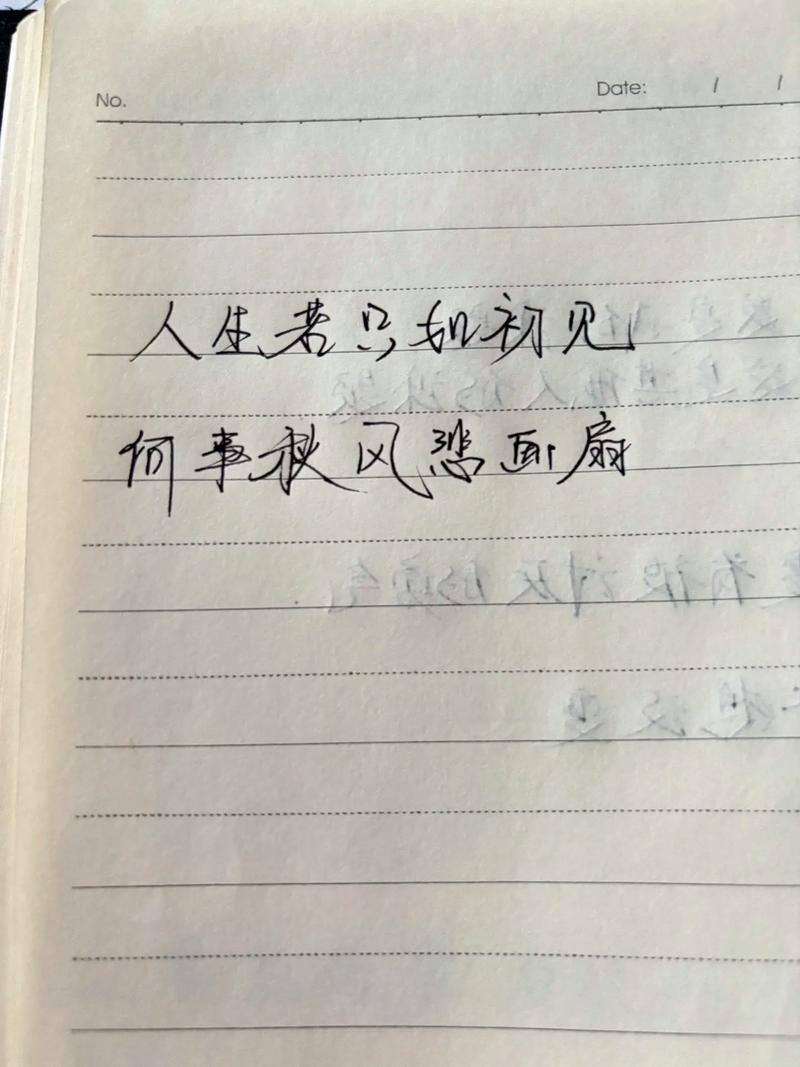 No.
Date: / /
人生若只如初见
何事秋风悲画扇